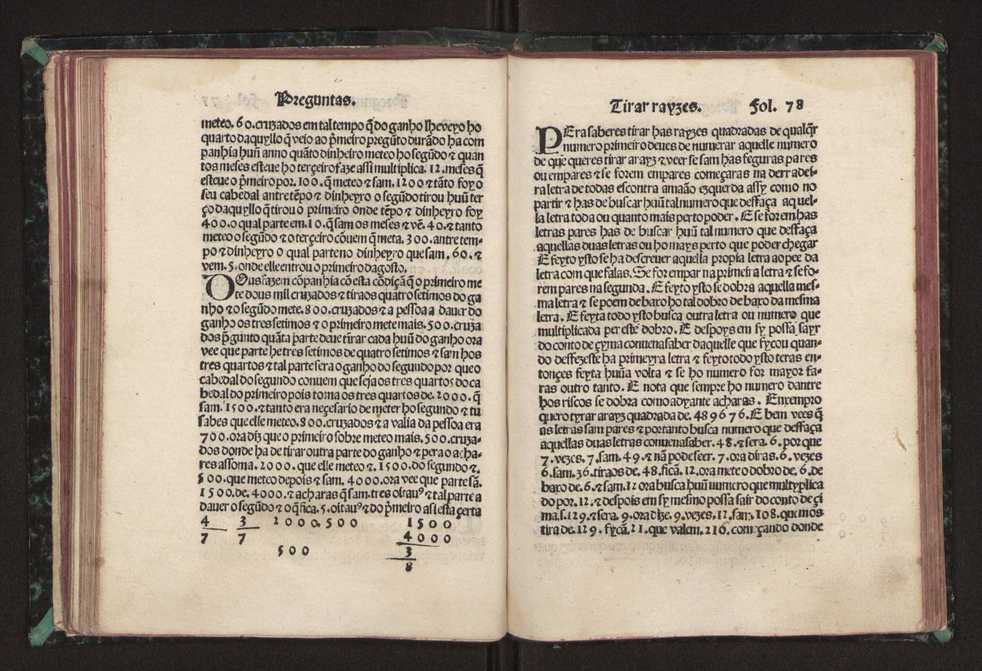 Preguntas.
meteo. 60. cruzados em tal tempo q̃ do ganho lhe veyo ho
quarto daquyllo q̃ veio ao p̃meiro pregũto durãdo ha com
panhia huũ anno quãto dinheiro meteo ho segũdo ⁊ quan
tos meses esteue ho terçeiro faze assi multiplica. 12. meses q̃
esteue o p̃meiro por. 100. q̃ meteo ⁊ sam. 1200 ⁊ tãto foy o
seu cabedal antre tẽpo ⁊ dinheyro o segũdo tirou huũ ter
ço daquyllo q̃ tirou o primeiro onde tẽpo ⁊ dinheyro foy
400. o qual parte em. 10. q̃ sam os meses ⁊ vẽ. 40. ⁊ tanto
meteo o segũdo ⁊ o terçeiro cõuem q̃ meta. 300. antre tem-
po ⁊ dinheyro o qual parte no dinheyro que sam, 60. ⁊
vem. 5. onde elle entrou o primeiro dagosto.
DOus fazem cõpanhia cõ esta cõdiçã q̃ o primeiro me
te dous mil cruzados ⁊ tira os quatro setimos do ga
nho ⁊ o segũdo mete. 800. cruzados ⁊ a pessoa a dauer do
ganho os tres setimos ⁊ o primeiro mete mais. 500. cruza
dos p̃gunto quãta parte deue tirar cada huũ do ganho ora
vee que parte he tres setimos de quatro setimos ⁊ sam hos
tres quartos ⁊ tal parte sera o ganho do segundo por que o
cabedal do segundo conuem que seja os tres quartos do ca
bedal do primeiro pois toma os tres quartos de. 2000. q̃
sam. 1500. ⁊ tanto era neçesario de meter ho segundo ⁊ tu
sabes que elle meteo. 800. cruzados ⁊ a valia da pessoa era
700. ora diz que o primeiro sobre meteo mais. 500. cruza-
dos donde ha de tirar outra parte do ganho ⁊ pera o acha-
res assoma. 2000. que elle meteo ⁊. 1500. do segundo ⁊.
500. que meteo depois ⁊ sam. 4000. ora vee que parte sã.
1500. de. 4000. ⁊ acharas q̃ sam. tres oitauꝰ ⁊ tal parte a
dauer o segũdo ⁊ o q̃ fica. 5. oitauꝰ ⁊ do p̃meiro asi esta çerta
4 3 2000. 500 1500
7 7 4000
500 3
8
Tirar rayzes. Fol. 78
PEra saberes tirar has rayzes quadradas de qualq̃r
numero primeiro deues de numerar aquelle numero
de que queres tirar a rayz ⁊ veer se sam has feguras pares
ou empares ⁊ se forem empares começaras na derradei-
ra letra de todas es contra a maão ezquerda assy como no
partir ⁊ has de buscar huũ tal numero que desfaça aquel-
la letra toda ou quanto mais perto poder. E se forem has
letras pares has de buscar huũ tal numero que desfaça
aquellas duas letras ou ho mays perto que poder chegar
E feyto ysto se ha de screuer aquella propia letra ao pee da
letra com que falas. Se for empar na primeira letra ⁊ se fo-
rem pares na segunda. E feyto ysto se dobra aquella mes-
ma letra ⁊ se poem de baxo ho tal dobro de baxo da mesma
letra. E feyta todo ysto busca outra letra ou numero que
multiplicada per este dobro. E despoys em sy possa sayr
do conto de çyma conuen a saber daquelle que fycou quan-
do deffezeste ha primeyra letra ⁊ feyto todo ysto teras en-
tonçes feyta huũa volta ⁊ se ho numero for mayor fa-
ras outro tanto. E nota que sempre ho numero dantre
hos riscos se dobra como adyante acharas. Enxempro
quero tyrar a rayz quadrada de. 489676. E bem vees q̃
as letras sam pares ⁊ portanto busca numero que desfaça
aquellas duas letras conuen a saber. 48. ⁊ sera. 6. por que
7. vezes. 7. sam. 49 ⁊ nã pode seer. 7. ora diras. 6. vezes
6. sam. 36. tira os de. 48. ficã. 12. ora mete o dobro de. 6. de
baxo de. 6. ⁊ sam. 12 ora busca huũ numero que multyplica
do por. 12. ⁊ despois em sy mesmo possa sair do conto de çi
ma. s. 129. ⁊ sera. 9. ora dize. 9. vezes. 12. sam. 108. que nos
tira de. 129. fycã. 21. que valem. 216. começando donde